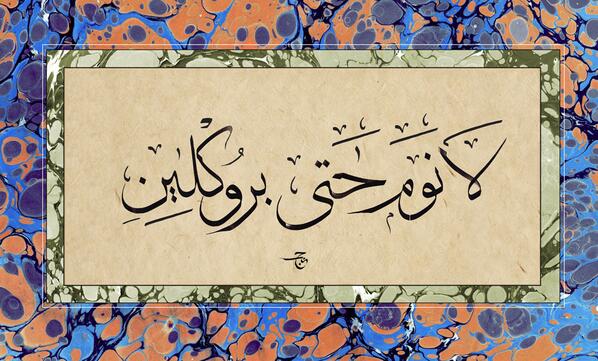 لَا نَومَ حَتى بُروكْلِينِ